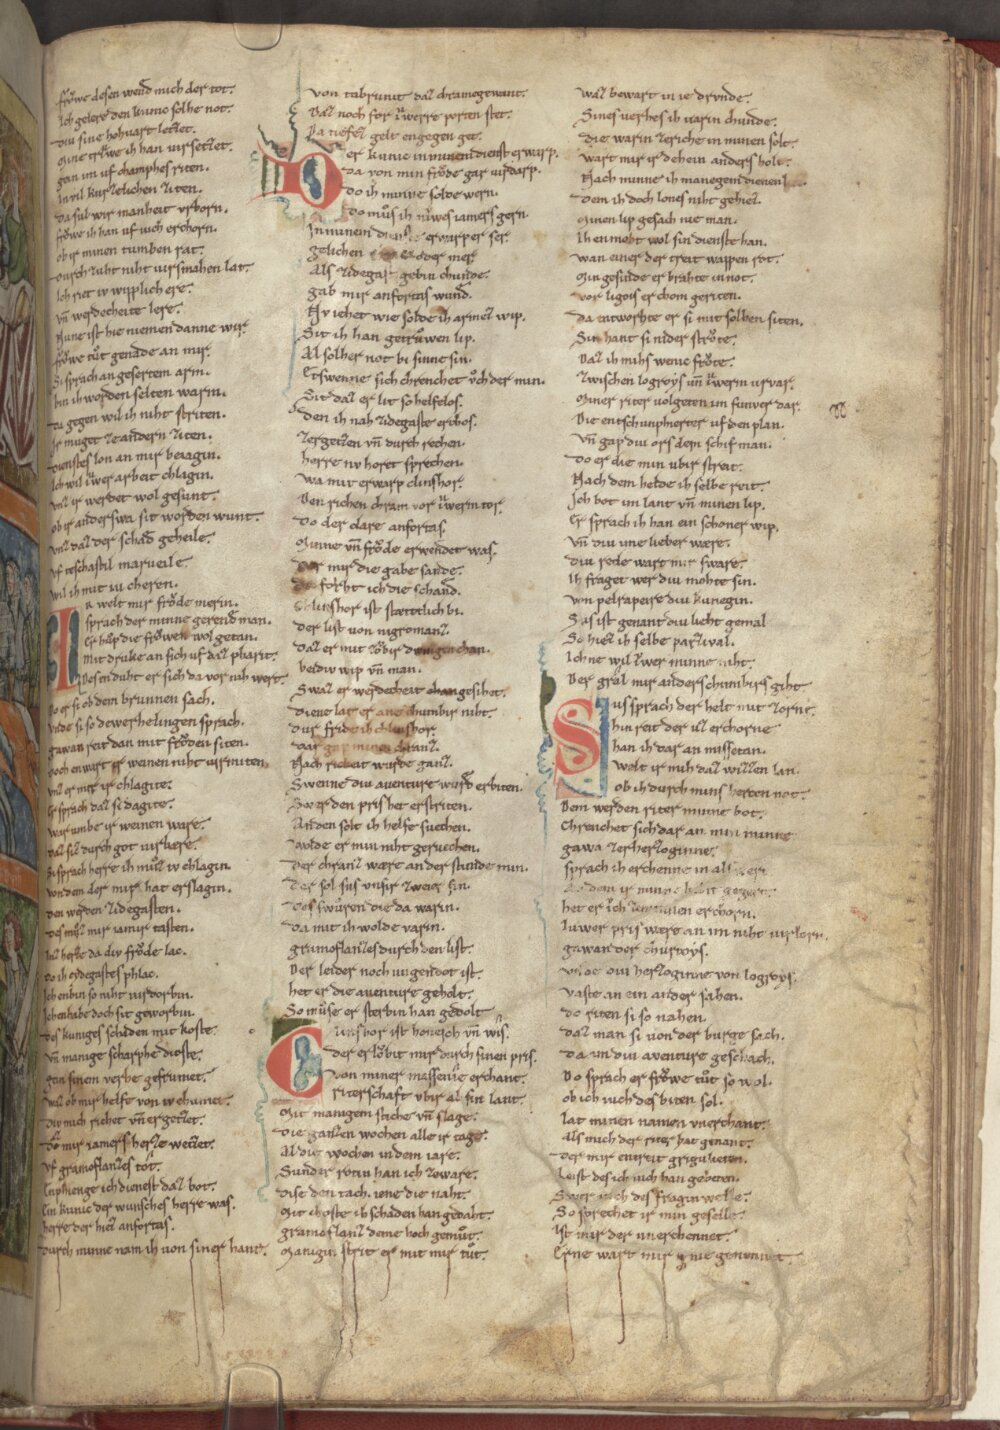 frǒwe desen wend mich der tot.
Ich gelere den kunic solhe not.
Diu sine hohuart lezzet.
Mine trůwe ih han virsezzet.
gein im uf champhes riten.
In vil kurzelichen ziten.
Da sul wir manheit vrborn.
frǒwe ih han uf ivch erchorn.
ob ir minen tumben rat.
Durch zuht niht virsmahen lat.
Ich riet iv wiplich ere.
vñ werdecheite lere.
Nune ist hie niemen danne wir.
frǒwe tůt genade an mir.
Si sprach an gesertem arm.
bin ih worden selten warm.
Da gegen wil ih niht striten.
Ir muget ze andern ziten.
Dienstes lon an mir beiagin.
Ich wil iwer arbeit chlagin.
unz ir werdet wol gesunt.
ob ir anderswa sit worden wunt.
unz daz der schad geheile.
vf tschastil marueile.
wil ih mit iv cheren.
Ir welt mir frǒde merin.
sprach der minne gerend man.
Er hůp die frǒwen wol getan.
Mit druke an sich uf daz phærit.
Des en duht er sich da vor nah wert.
Do er si ob dem brunnen sach.
unde si so dewerhelingen sprach.
gawan reit dan mit frǒden siten.
doch en wart ir weinen niht virmiten.
unz er mit ir chlagite.
Er sprach daz si sagite.
war umbe ir weinen ware.
daz siz durch got virbære.
Si sprach herre ih můz iv chlagin.
von dem der mir hat erslagin.
den werden zidegasten.
des můz mir iamir tasten.
Inz herze da div frǒde lac.
do ih cydegastes phlac.
Ich en bin so niht virdorbin.
Ich en habe doch sit geworbin.
des kuniges schaden mit koste.
vñ manige scharphe dioste.
gein sinem verhe gefrumet.
waz ob mir helfe von iv chumet.
Div mich richet vñ ergetzet.
Dc mir iamers herze wetzet.
Vf gramoflanzes tot.
Enphienge ich dienest daz bot.
Ein kunic der wunsches herre was.
herre der hiez anfortas.
Durch minne nam ih von siner hant.
von tabrunit daz chramgewant.
Daz noch for ůwerre porten stet.
Da tiefez gelt engegen get.
Der kunic in minem dienst erwarp.
da von min frǒde gar virdarp.
do ih minne solde wern.
do můs ih nůwes iamers gern.
In minem dienste erwarper ser.
gelichen oder mer.
Als zidegast gebin chunde.
gab mir anfortas wund.
Nv iehet wie solde ih armez wip.
Sit ih han getrůwen lip.
Al solher not bi sinne sin.
Etswenne sich chrenchet ǒch der min.
Sit daz er lit so helfelos.
Den ih nah zidegaste erchos.
zergetzen vñ durch rechen.
herre nv horet sprechen.
wa mit erwarp clinshor.
Den richen chram vor ůwerm tor.
Do der clare anfortas.
Minne vñ frǒde erwendet was.
der mir die gabe sande.
do forht ich die schand.
Clinshor ist stætetlich bi.
der list von nigromanz.
daz er mit zǒbir dwingin chan.
beidiv wip vñ man.
Swaz er werdecheit changesihet.
Diene lat er ane chumbir niht.
Dur fride ih clinshor.
Dar gap minen chranz.
Nach richeit wurde ganz.
Swenne div aventure wurd erbiten.
Swer den pris het erstriten.
An den solt ih helfe suechen.
wolde er min niht geruechen.
Der chranz wære an der stunde min.
Der sol sus unsir zweier sin.
Des swůren die da warin.
Da mit ih wolde varin.
gramoflanzes durch den list.
Der leider noch ungendot ist.
het er die aventure geholt.
So můse er sterbin han gedolt.
Clinshor ist hovesch vñ wis.
der erlǒbit mir durch sinen pris.
von miner massenie erchant.
riterschaft ubir al sin lant.
Mit manigem stiche vñ slage.
Die ganzen wochen alle ir tage.
Al die wochen in dem iare.
Sunder rotin han ich zeware.
Dise den tach. iene die naht.
Mit choste ih schaden han gedaht.
gramoflanz deme hoch gemůt.
Manigin strit er mit mir tůt.
waz bewart in ie drunde.
Sines verhes ih varin chunde.
die warin zeriche in minen solt.
wart mir er dehein anders holt.
Nach minne ih manegem dienen
Dem ih doch lones niht gehiez.
Minen lip gesach nie man.
Ih en moht wol sin dienste han.
wan einer der treit wappen rot.
Min gesinde er brahte in not.
vor ligois er chom geriten.
da entworhte er si mit solhen siten.
Sin hant si nider strǒte.
Daz ih mihs wenic frǒte.
Zwischen logroys vñ ůwerm urvar.
Miner riter volgeten im funver dar.
Die entschunphierter uf den plan.
vñ gap div ors dem schifman.
do er die min ubir streit.
Nach dem helde ih selbe reit.
Ich bot im lant vñ minen lip.
Er sprach ih han ein schoner wip.
vñ div mir lieber wære.
Div rede wart mir sware.
Ih fraget wer div mohte sin.
von pelrapeire div kunegin.
Sas ist genant div lieht gemal
So heiz ih selbe parzival.
Ichne wil iwer minne niht.
Der gral mir anders chumbirs giht
Sus sprach der helt mit zorne.
hin reit der uz erchorne
han ih dar an missetan.
welt ir mih daz wizzen lan.
ob ih durch mins herzen not.
Dem werden riter minne bot.
Chrenchet sich dar an min minne
gawa zer herzoginne.
sprach ih erchenne in al
An dem ir minne habit gegert.
het er ǒch minnen erchorn.
Iuwer pris wære an im niht virlorn.
gawan der churtoys.
unde div herzoginne von logroys.
Vaste an ein ander sahen.
do riten si so nahen.
daz man si von der burge sach.
da un div aventure geschach.
Do sprach er frǒwe tůt so wol.
ob ich iuch des biten sol.
lat minen namen vnerchant.
als mich der riter hat genant.
der mir entreit gringulieten.
leist des ich iuch han gebeten.
Swer iuch des fragin welle.
So sprechet ir min geselle.
Ist mir der unerchennet.
Erne wart mir nie genennet.